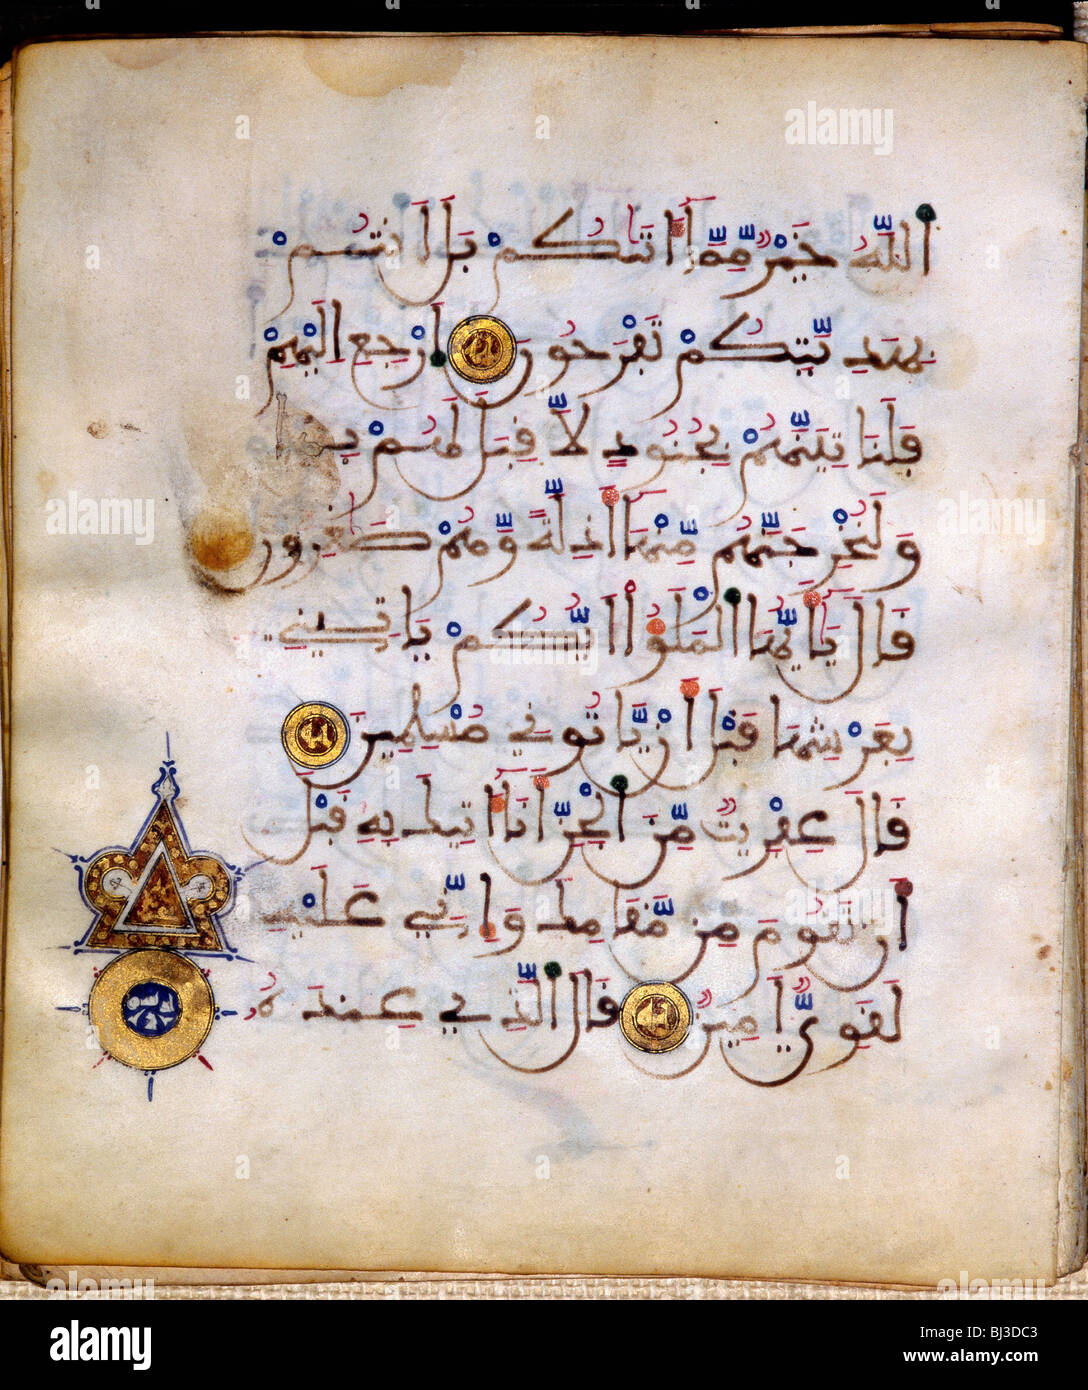 اَللَّهُ خَيْرٌ مِّمَّا ءَاتَىٰكُمْ بَلْ أَنتُمْ
بِهَدِيَّتِكُمْ تَفْرَحُونَ ارْجِعِ إِلَيْهِمْ
فَلَنَاتِيَنَّهُمْ بِجُنُودٍ لَّا قِبَلَ لَهُمْ بِهَا
وَلَنُخْرِجَنَّهُمْ مِّنْهَا أَذِلَّةً وَّهُمْ صَٰغِرُونَ
قَالَ يَٰأَيُّهَا الْمَلَؤُا أَيُّكُمْ يَاتِينِي
بِعَرْشِهَا قَبْلَ أَنْ يَّاتُونِي مُسْلِمِينَ
قَالَ عِفْرِيتٌ مِّنَ الْجِنِّ أَنَا ءَاتِيكَ بِهِ قَبْلَ
أَن تَقُومَ مِن مَّقَامِكَ وَإِنِّي عَلَيْهِ
لَقَوِيٌّ أَمِينٌ قَالَ الَّذِي عِندَهُ
alamy
a
Image ID: BJ3DC3
www.alamy.com